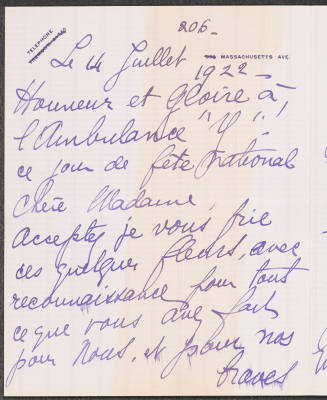 206-
TELEPHONE
MASSACHUSETTS AVE.
Le 14 Juillet
1922_
Honneur et gloire à
l'Ambulance "Y"!
ce jour de fête national
Chère Madame,
Acceptez je vous prie
ces quelques fleurs, avec
reconnaissance pour tout
ce que vous avez fait
pour nous, et pour nos
braves